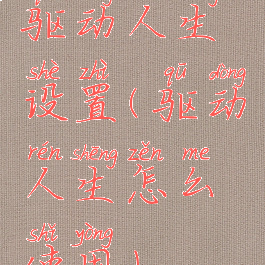 驱动人生
shè zhì qū dòng
设置(驱动
rén shēng zěn me
人生怎么
shǐ yòng
使用)